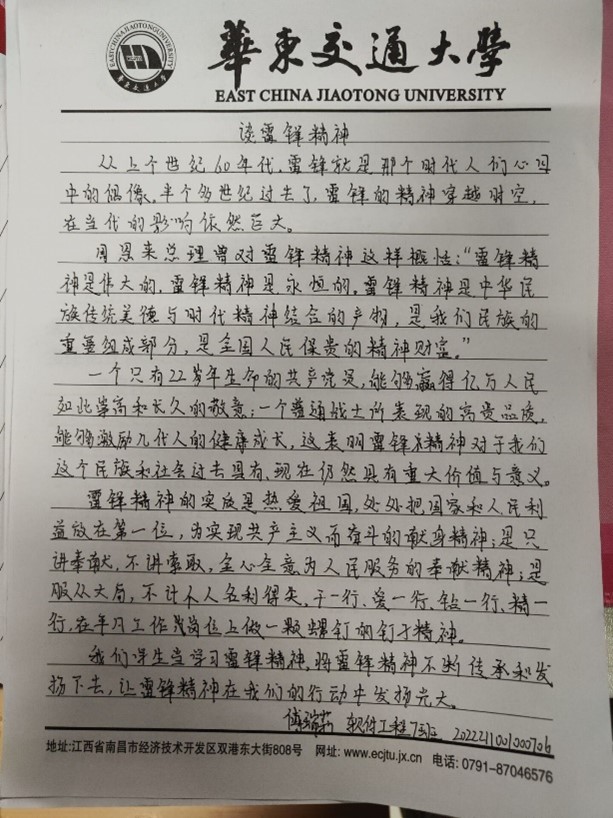 華東交通大學
EAST CHINA JIAOTONG UNIVERSITY
读雷锋精神
从上个世纪60年代,雷锋就是那个时代人们心目
中的偶像,半个多世纪过去了,雷锋的精神穿越时空,
在当代的影响依然巨大。
周恩来总理曾对雷锋精神这样概性:“雷锋精
神是伟大的,雷锋精神是永恒的。雷锋精神是中华民
族传统美德与时代精神结合的产物,是我们民族的
重要组成部分,是全国人民保贵的精神财富。”
一个只有22岁年生命的共产党员,能够赢得亿万人民
如此崇高和长久的敬意;一个普通战士所表现的高贵品质,
能够激励几代人的健康成长,这表明雷锋精神对于我们
这个民族和社会过去具有,现在仍然具有重大价值与意义。
雷锋精神的实质是热爱祖国,处处把国家和人民利
益放在第一位,为实现共产主义而奋斗的献身精神;是只
讲奉献,不讲索取,全心全意为人民服务的奉献精神;是
服从大局,不计个人名利得失,干一行、爱一行、钻一行、精一
行,在平凡工作岗位上做一颗螺钉的钉子精神。
我们学生当学习雷锋精神,将雷锋精神不断传承和发
扬下去,让雷锋精神在我们的行动中发扬光大。
傅 软件工程7班 2022211001000706
地址:江西省南昌市经济技术开发区双港东大街808号 网址: www.ecjtu.jx.cn 电话: 0791-87046576